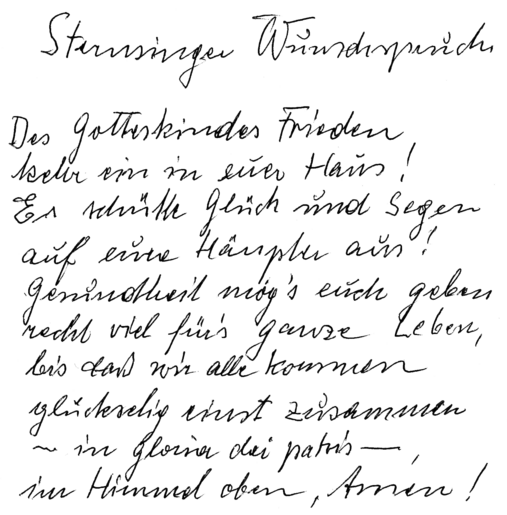 Sternsinger Wunschspruch
Des Gotteskindes Frieden
kehr ein in euer Haus!
Es schütte Glück und Segen
auf eure Häupter aus!
Gesundheit mög's euch geben
recht viel für's ganze Leben,
bis daß wir alle kommen
glückselig einst zusammen
~ in gloria dei patris —,
im Himmel oben, Amen!